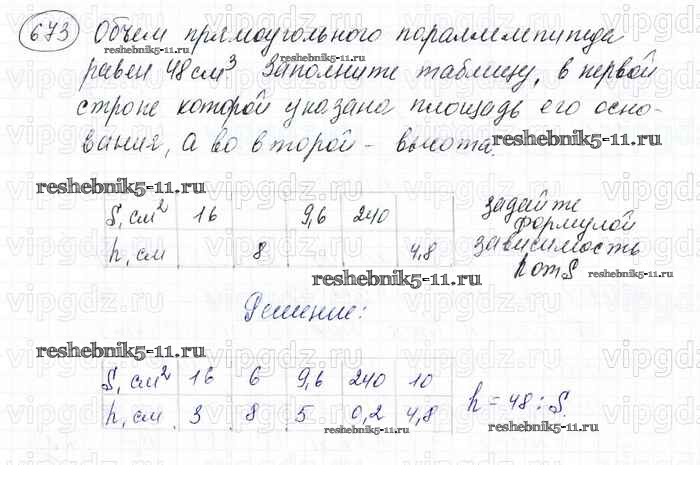 673 Объем прямоугольного параллелепипеда
равен 48 см³. Заполните таблицу, в первой
строке которой указана площадь его осно-
вания, а во второй - высота.
reshebnik5-11.ru
reshebnik5-11.ru
reshebnik5-11.ru
S, см² 16 9,6 240
h, см 8 4,8
задайте
формулой
зависимость
h от S
reshebnik5-11.ru
reshebnik5-11.ru
Решение:
reshebnik5-11.ru
S, см² 16 6 9,6 240 10
h, см 3 8 5 0,2 4,8
h = 48 : S.
reshebnik5-11.ru
reshebnik5-11.ru
vipgdz.ru